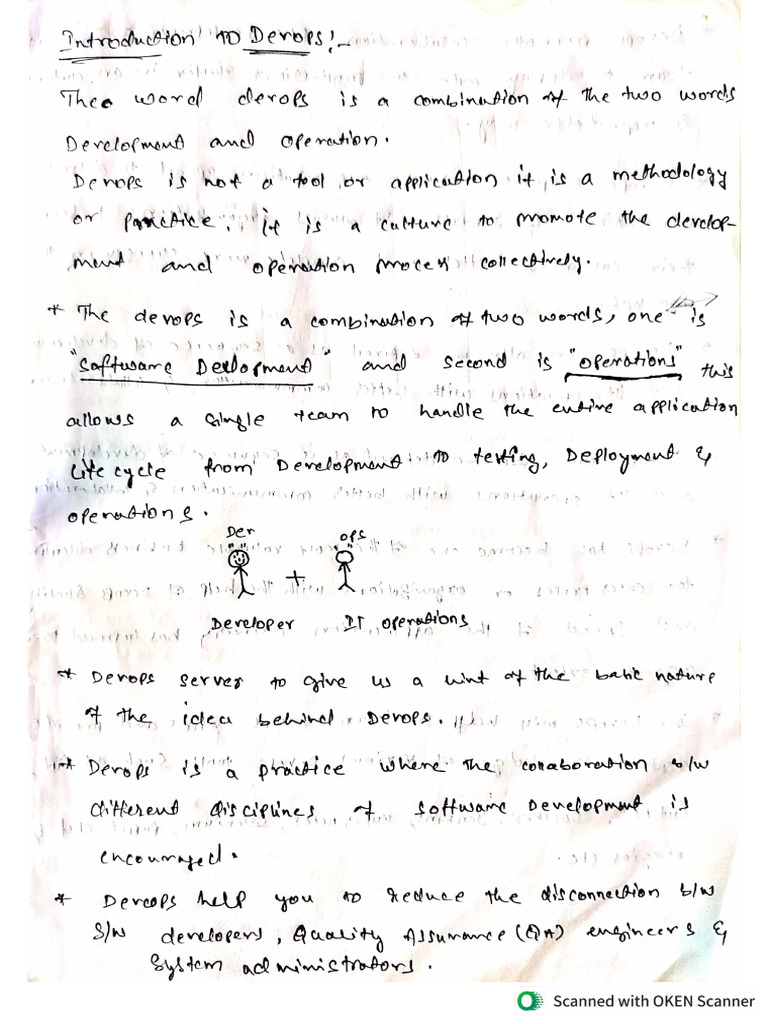 Introduction TO Devops:-
The word devops is a combination of the two words
Development and operation.
Devops is not a tool or application it is a methodology
or practice. it is a culture to promote the develop-
ment and operation process collectively.
* The devops is a combination of two words, one is
"Software Development" and second is "operations" this
allows a single team to handle the entire application
Life cycle from Development to testing, Deployment &
operations.
Dev ops
+
Developer IT operations
* Devops server to give us a hint of the basic nature
of the idea behind Devops.
* Devops is a practice where the collaboration b/w
different disciplines of software Development is
encouraged.
* Devops help you to reduce the disconnection b/w
S/W developers, Quality Assurance (QA) engineers &
System administrators.
Scanned with OKEN Scanner